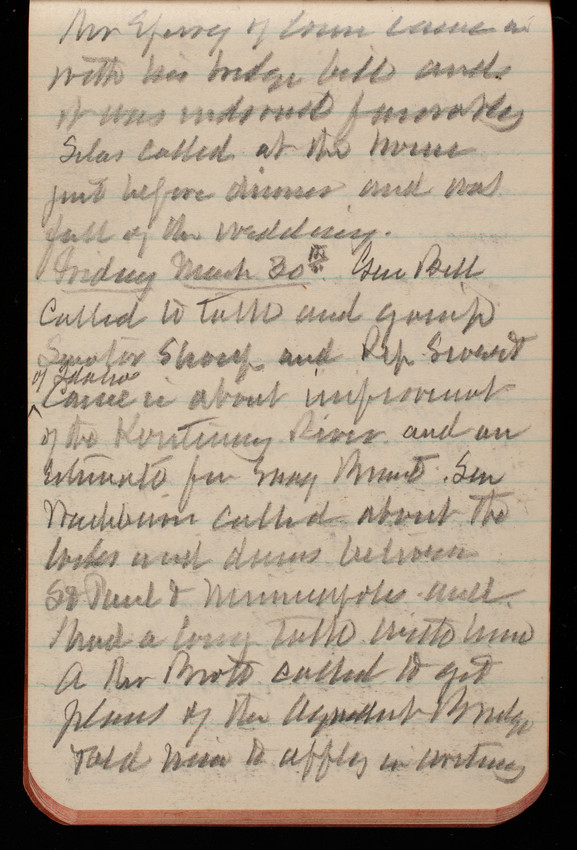 Mr of came in
with his bridge bill and
it was indorsed favorably
Silas called at the house
just before dinner and was
full of the wedding.
Friday March 30th. Gen Bell
called to talk and gossip
Senator Shoup and Rep Sweet
of Idaho
came in about improvement
of the Kootenay River and an
estimate for Snag Boat. Sen
Washburn called about the
locks and dams between
St Paul & Minneapolis and
I had a long talk with him
A Mr Brott called to get
plans of the Aqueduct Bridge
Told him to apply in writing